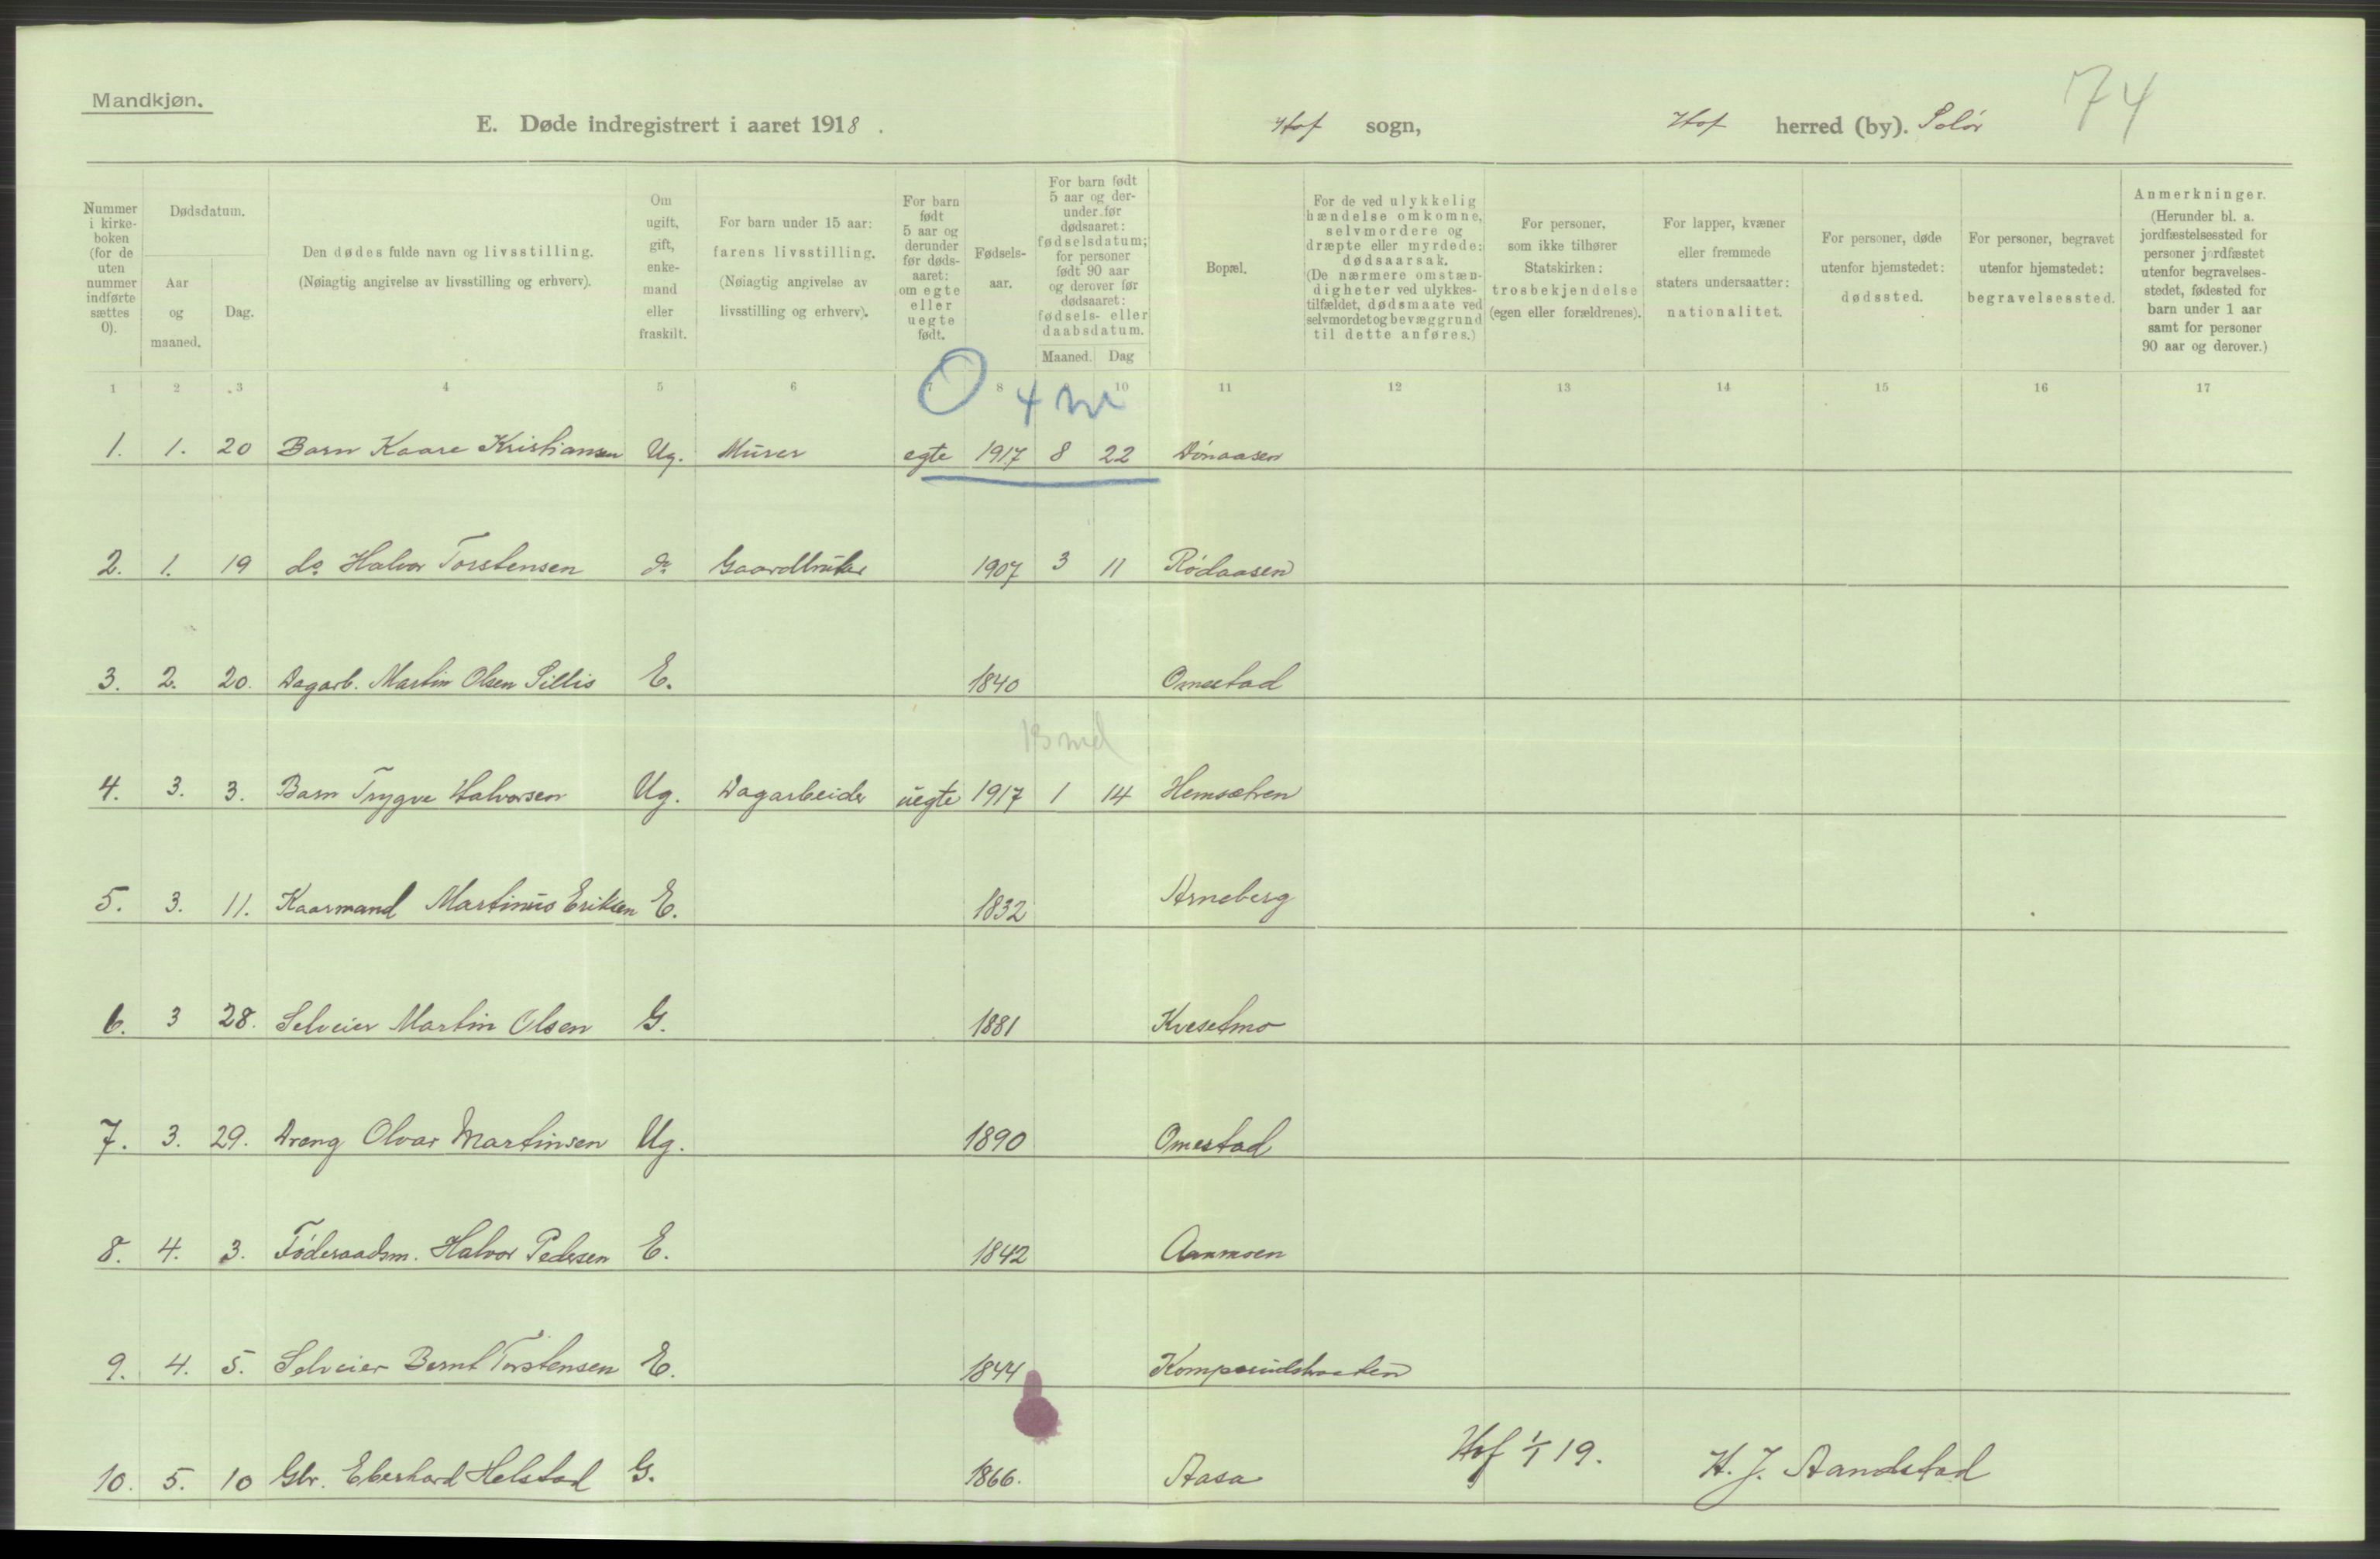 Mandkjøn.
74
E. Døde indregistrert i aaret 1918.
Hof sogn, Hof herred (by). Solør
Nummer i kirke-boken (for de uten nummer indførte sættes 0).
Dødsdatum.
Aar og maaned.
Dag.
Den dødes fulde navn og livsstilling.
(Nøiagtig angivelse av livsstilling og erhverv).
Om ugift, gift, enke-mand eller fraskilt.
For barn under 15 aar: farens livsstilling.
(Nøiagtig angivelse av livsstilling og erhverv).
For barn født 5 aar og derunder før døds-aaret: om egte eller uegte født.
Fødsels-aar.
For barn født 5 aar og der-under før dødsaaret: fødselsdatum; for personer født 90 aar og derover før dødsaaret: fødsels- eller daabsdatum.
Maaned. Dag
Bopæl.
For de ved ulykkelig hændelse omkomne, selvmordere og dræpte eller myrdede: dødsaarsak.
(De nærmere omstæn-digheter ved ulykkes-tilfældet, dødsmaate ved selvmordet og bevæggrund til dette anføres.)
For personer, som ikke tilhører Statskirken: trosbekjendelse (egen eller forældrenes).
For lapper, kvæner eller fremmede staters undersaatter: nationalitet.
For personer, døde utenfor hjemstedet: dødssted.
For personer, begravet utenfor hjemstedet: begravelsessted.
Anmerkninger.
(Herunder bl. a. jordfæstelsessted for personer jordfæstet utenfor begravelses-stedet, fødested for barn under 1 aar samt for personer 90 aar og derover.)
1 2 3 4 5 6 7 8 10 11 12 13 14 15 16 17
O 4 m
1. 1. 20 Barn Kaare Kristiansen Ug. Murer egte 1917 8 22 Dønaasen
2. 1. 19 do Halvor Torstensen do Gaardbruker 1907 3 11 Rødaasen
3. 2. 20. Dagarb. Martin Olsen Sillis E. 1840 Omestad
13 md
4. 3. 3. Barn Trygve Halvorsen Ug. Dagarbeider uegte 1917 1 14 Hemsætren
5. 3. 11. Kaarmand Martinus Eriksen E. 1832 Arneberg
6. 3 28. Selveier Martin Olsen G. 1881 Kvesetmo
7. 3. 29. Dreng Olvar Martinsen Ug. 1890 Omestad
8. 4. 3. Føderaadsm. Halvor Pedersen E. 1842 Aamoen
9. 4. 5. Selveier Bernt Torstensen E. 1844
10. 5. 10 Gbr. Eberhard Helstad G. 1866. Aasa
Hof 1/1 19. H. J. Aandstad